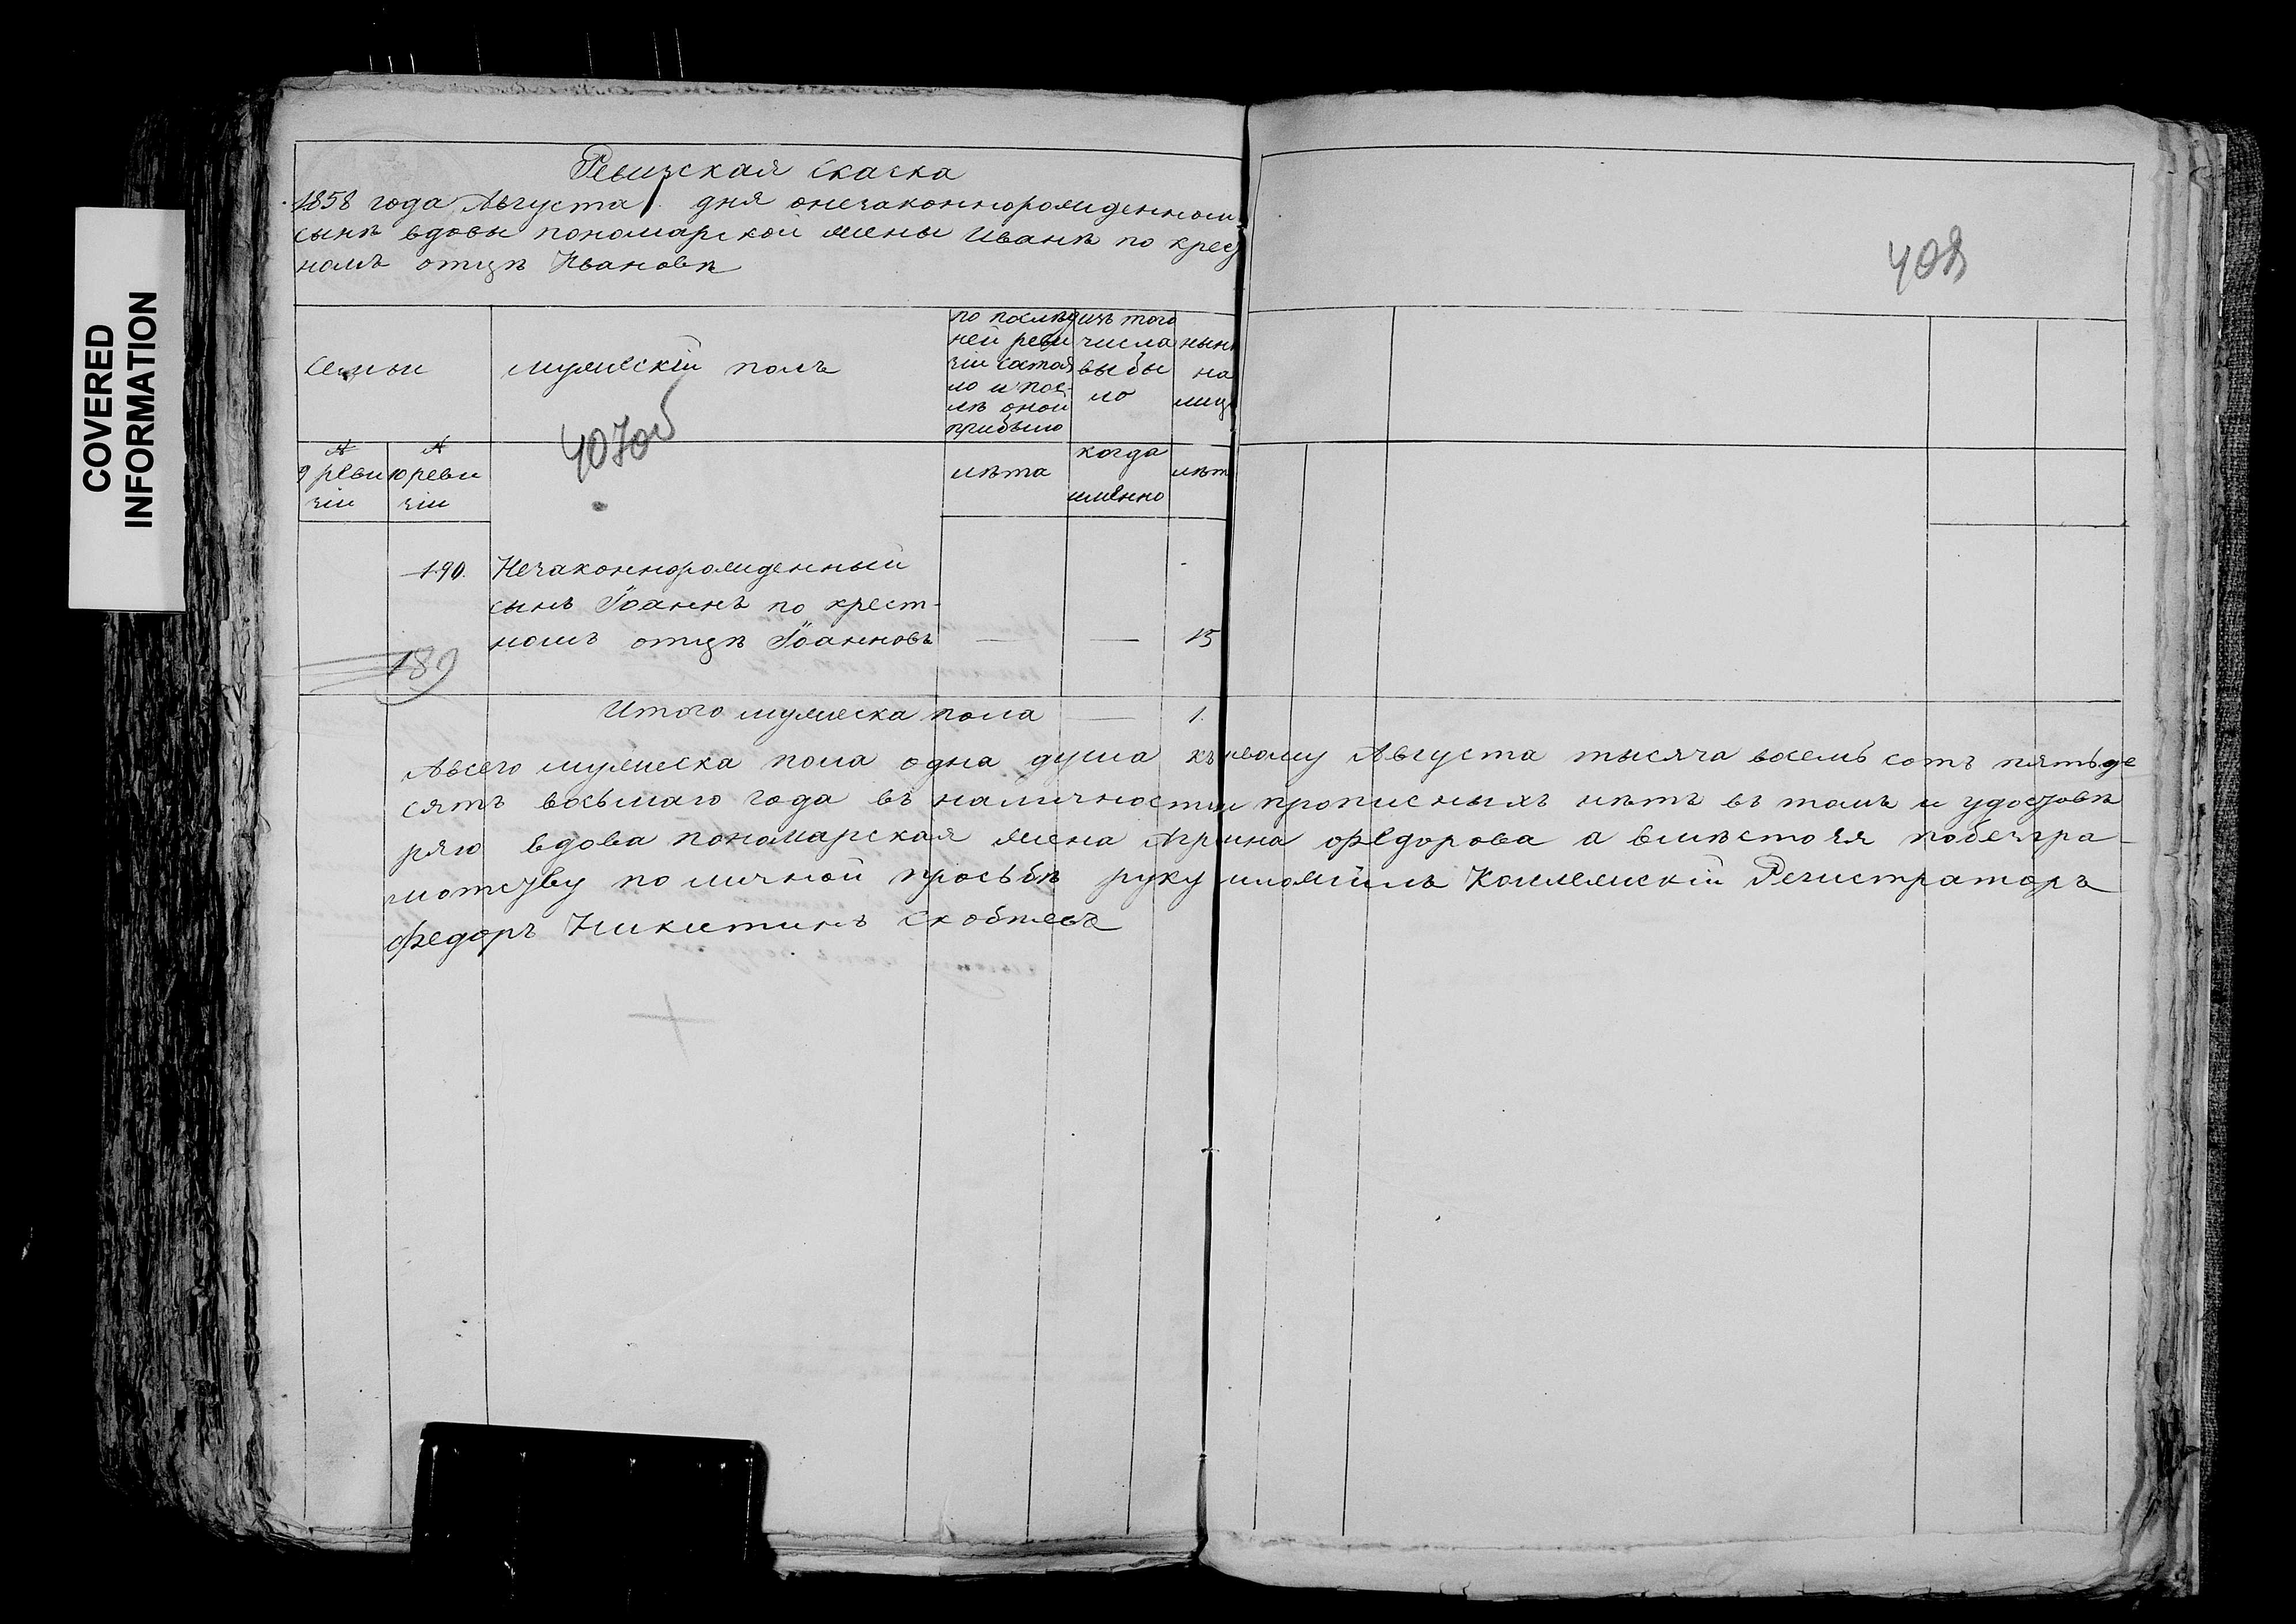 COVERED
INFORMATION
Ревизская скаска
1858 года Августа 1 дня онезаконнорожденном
сынѣ вдовы пономарской жены Иванѣ по крест
номъ отцѣ Ивановѣ
408
семьи
мужескій полъ
по послѣд
ней реви
зіи состоя
ло и пос-
лѣ оной
прибыло
изъ того
числа
выбы
ло
нынѣ
на
лицо
407об
№
9 реви
зіи
№
10 реви
зіи
лѣта
когда
именно
лѣт
190. Незаконнорожденный
сынъ Іоаннъ по крест-
номъ отцѣ Іоанновъ — — 15
189
Итого мужеска пола — 1.
Авсего мужеска пола одна душа къ первому Августа тысяча восемь сотъ пятьде
сятъ восьмаго года въ наличности и прописныхъ нѣтъ въ томъ и удостовѣ
ряю вдова пономарская жена Ирина Ѳедорова а вмѣсто ея побезгра-
мотству по личной просьбѣ руку приложилъ Коллежскій Регистраторъ
Ѳедоръ Никитинъ